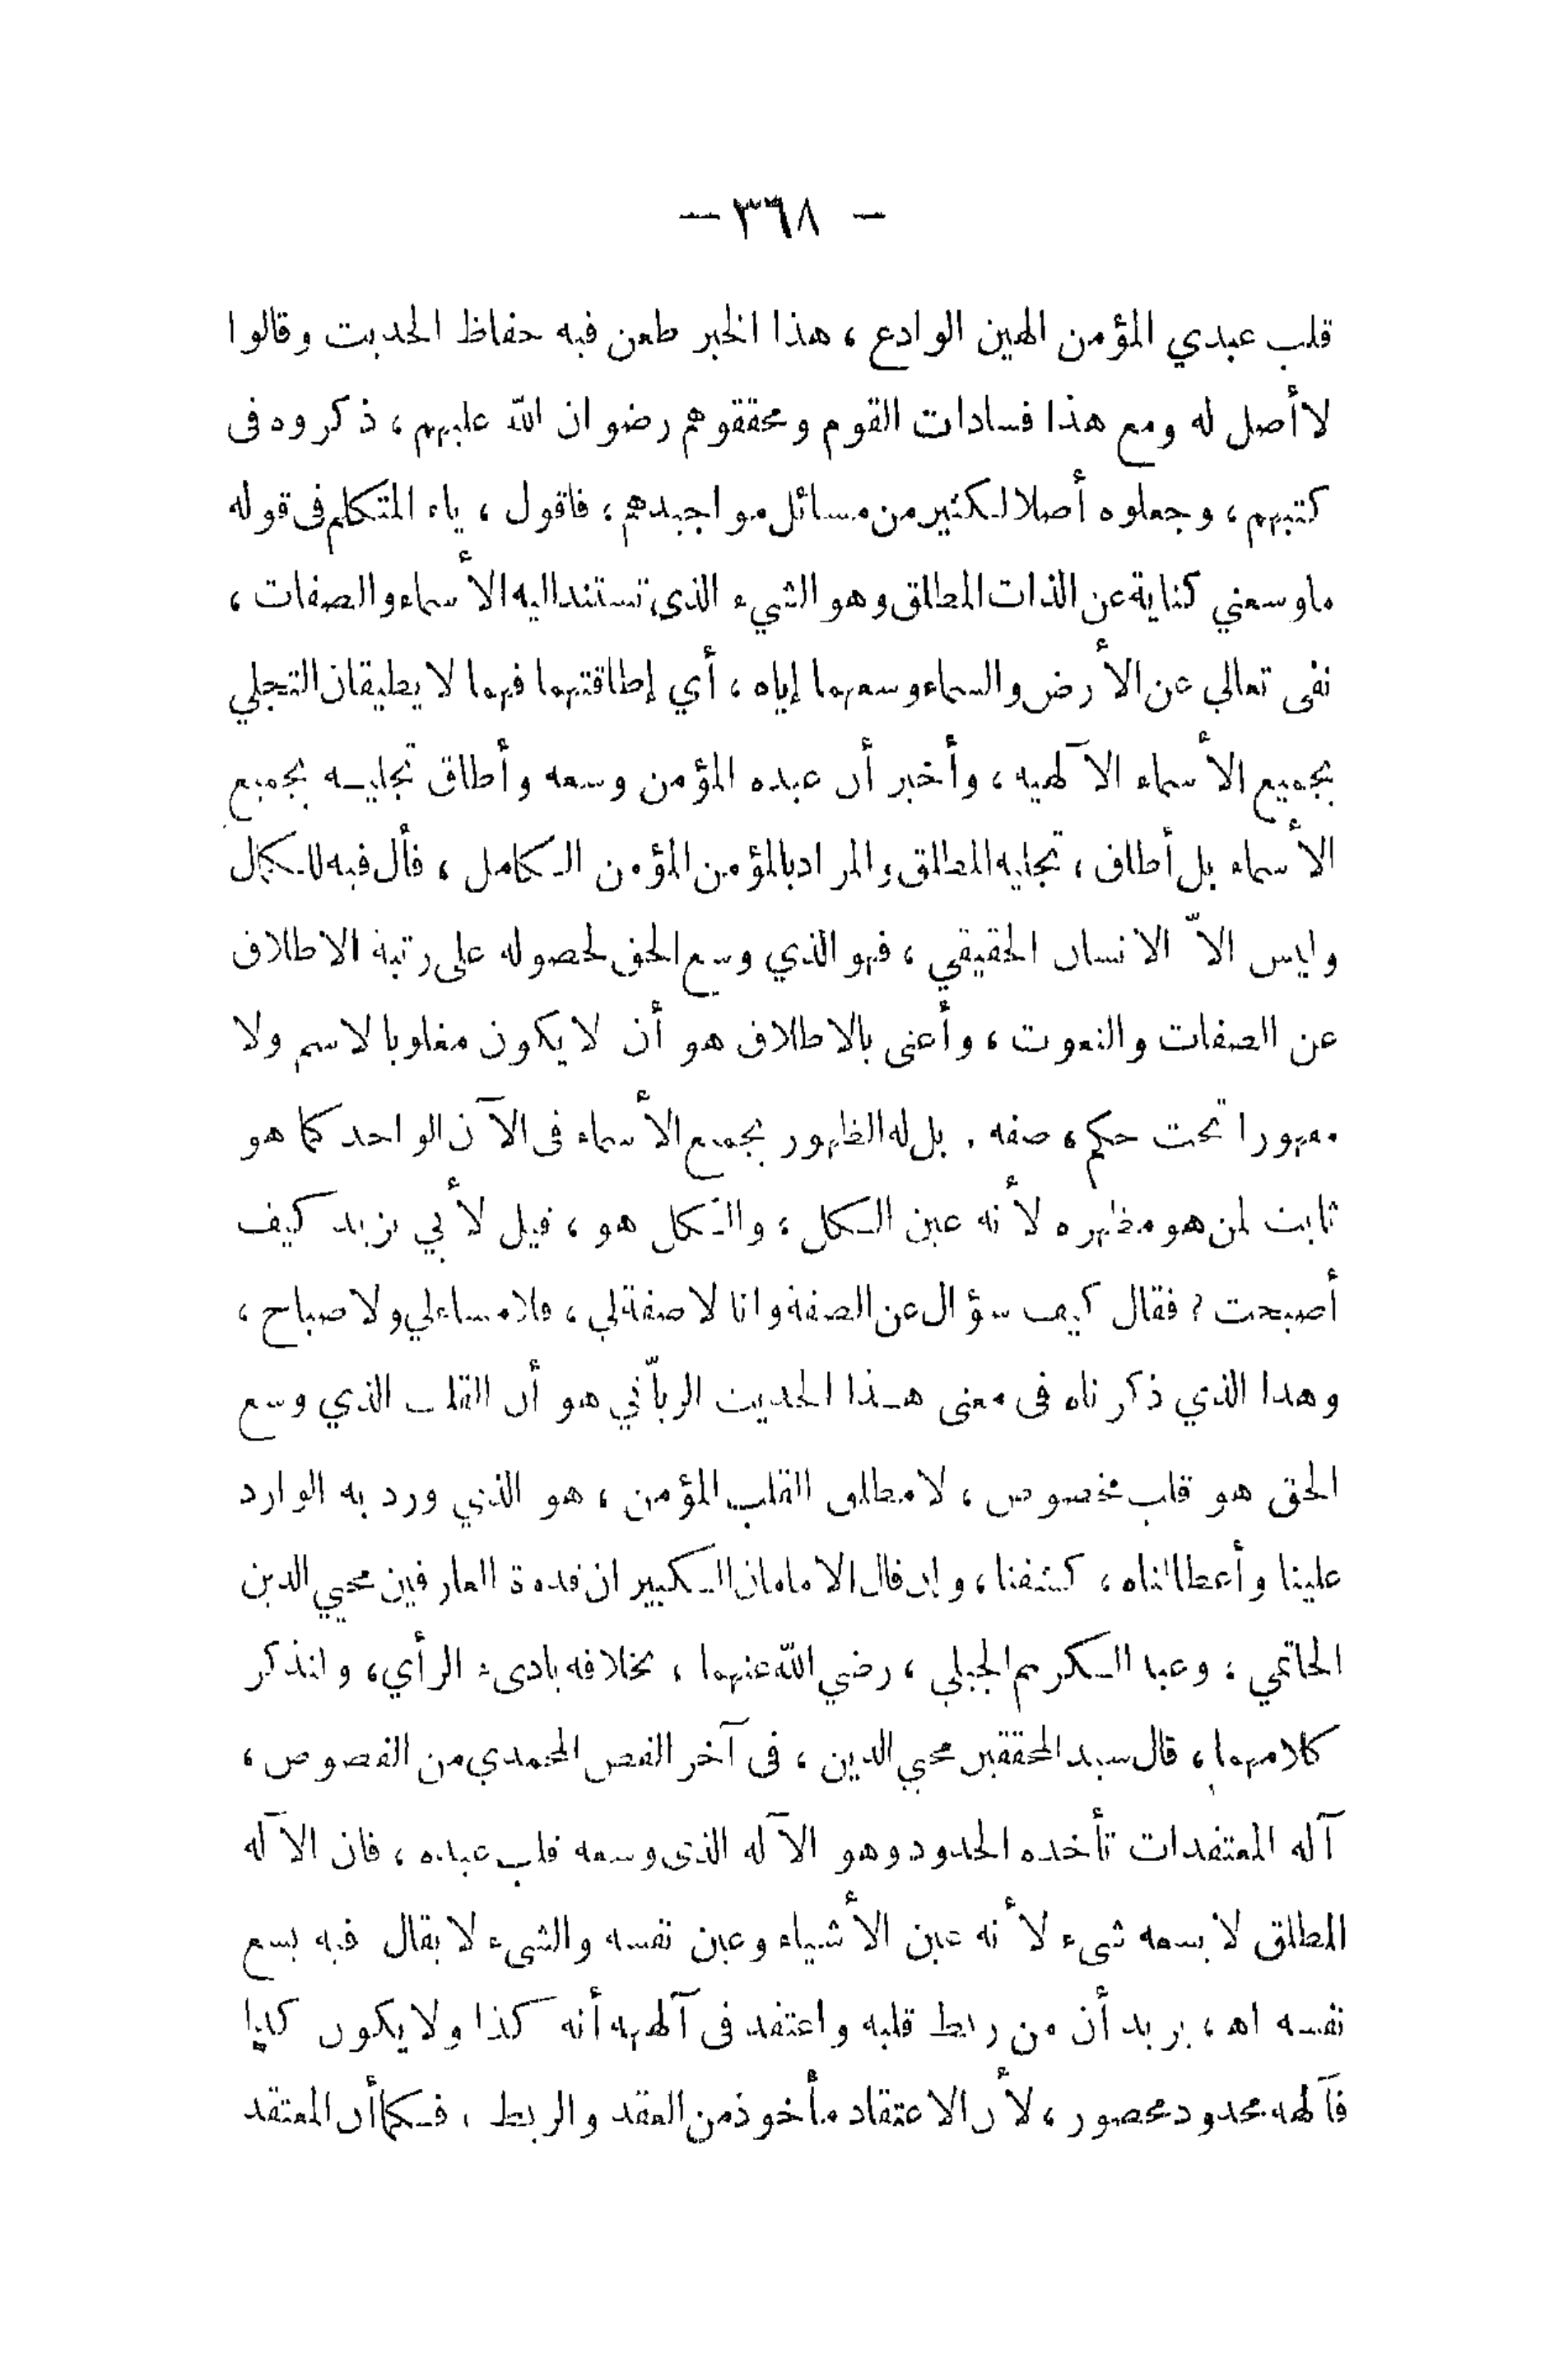 — ٣٦٨ —
قلب عبدي المؤمن الهين الوادع ، هذا الخبر طعن فيه حفاظ الحديث وقالوا
لا أصل له ومع هذا فسادات القوم ومحققوهم رضوان الله عليهم ، ذكروه فى
كتبهم ، وجعلوه أصلا لكثير من مسائل مواجيدهم ، فاقول ، ياء المتكلم فى قوله
ماوسعني كناية عن الذات المطلق وهو الشيء الذى تستند اليه الأسماء والصفات ،
نفى تعالي عن الأرض والسماء وسعهما إياه ، أي إطاقتهما فهما لا يطيقان التجلي
بجميع الأسماء الآلهيه ، وأخبر أن عبده المؤمن وسعه وأطاق تجليه بجميع
الأسماء بل أطاق ، تجليه المطلق والمراد بالمؤمن المؤمن الكامل ، فأل فيه للكمال
وليس الاّ الانسان الحقيقي ، فهو الذي وسع الحق لحصوله على رتبة الاطلاق
عن الصفات والنعوت ، وأعنى بالاطلاق هو أن لا يكون مغلوبا لاسم ولا
مقهورا تحت حكم ، صفه . بل له الظهور بجميع الأسماء فى الآن الواحد كما هو
ثابت لمن هو مظهره لأنه عين الكل ، والكل هو ، قيل لأبي يزيد كيف
أصبحت ؟ فقال كيف سؤال عن الصفة وانا لا صفة لي ، فلا مساء لي ولا صباح ،
وهذا الذي ذكرناه فى معنى هذا الحديث الربّاني هو أن القلب الذي وسع
الحق هو قلب مخصوص ، لا مطلق القلب المؤمن ، هو الذي ورد به الوارد
علينا وأعطالناه ، كشفنا ، وإن قال الامامان الكبيران قدوة العارفين محيي الدين
الحاتمي ، وعبد الكريم الجيلي ، رضي الله عنهما ، بخلافه بادىء الرأي ، ولنذكر
كلامهما ، قال سيد المحققين محيي الدين ، فى آخر الفص المحمدي من الفصوص ،
آله المعتقدات تأخذه الحدود وهو الآله الذى وسعه قلب عبده ، فان الآله
المطلق لا يسعه شىء لأنه عين الأشياء وعين نفسه والشىء لا يقال فيه يسع
نفسه اه ، يريد أن من ربط قلبه واعتقد فى آلهه أنه كذا ولا يكون كذا
فآلهه محدود محصور ، لأن الاعتقاد مأخوذ من العقد والربط ، فكما أن المعتقد